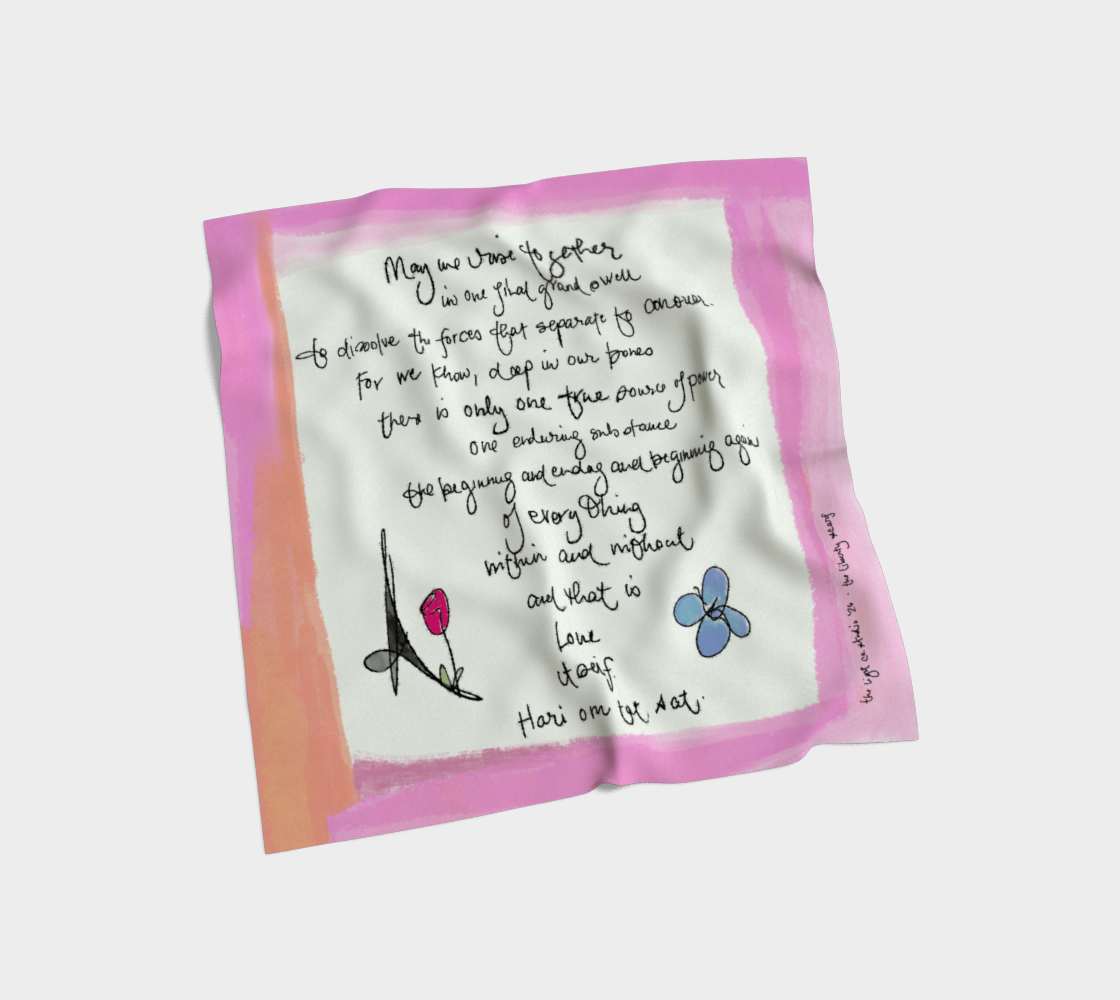 May we rise together
in one final grand swell
to dissolve the forces that separate to conquer.
For we know, deep in our bones
there is only one true source of power
one enduring substance
the beginning and ending and beginning again
of everything
within and without
and that is
Love
itself.
Hari om tat sat.
the light co studio '26 - the liberty scarf